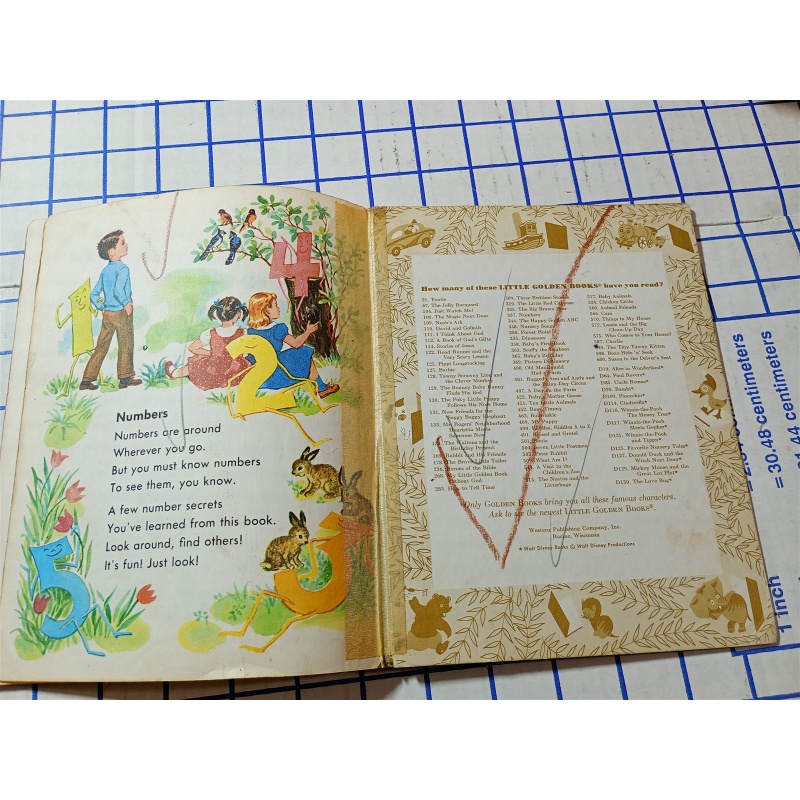 4
1
2
Numbers
Numbers are around
Wherever you go.
But you must know numbers
To see them, you know.
A few number secrets
You've learned from this book.
Look around, find others!
It's fun! Just look!
5
3
How many of these LITTLE GOLDEN BOOKS® have you read?
The Jolly Barnyard
Just Watch Me!
The Magic Next Door
Noah's Ark
David and Goliath
I Think About God
A Book of God's Gifts
Stories of Jesus
Road Runner and the
Very Scary Lesson
Pippi Longstocking
Barbie
Tawny Scrawny Lion and
the Clever Monkey
The Bouncy Baby Bunny
Finds His Bed
The Poky Little Puppy
Follows His Nose Home
New Friends for the
Saggy Baggy Elephant
Mr. Rogers' Neighborhood
Henrietta Meets
Someone New
The Waltons and the
Birthday Present
and His Friends
The Brave Little Tailor
Heroes of the Bible
My Little Golden Book
About God
How to Tell Time
Three Bedtime Stories
The Little Red
The Big Brown Bear
Numbers
The Happy Golden ABC
Nursery Songs
Forest Hotel
Dinosaurs
Baby's First Book
Scuffy the Tugboat
Baby's Birthday
Picture Dictionary
Old MacDonald
Had a Farm
Raggedy Ann and Andy and
the Rainy Day Circus
A Day on the Farm
Baby's Mother Goose
Ten Little Animals
Busy Timmy
Rumpelstiltskin
My Puppy
Hansel and Gretel
Seven Little Postmen
Peter Rabbit
What Am I?
A Visit to the
Children's Zoo
Baby Animals
Chicken Little
Animal Friends
Cars
Things in My House
Lassie and the Big
Clean-Up Day
Who Comes to Your House?
Charlie
The Tiny Tawny Kitten
Susan in the Driver's Seat
D19. Alice in Wonderland★
Paul Revere★
Uncle Remus★
Bambi★
Pinocchio★
Cinderella★
D116. Winnie-the-Pooh
The Honey Tree★
D117. Winnie-the-Pooh
Meets Gopher★
Winnie-the-Pooh
and Tigger★
D125. Favorite Nursery Tales★
D127. Donald Duck and the
Witch Next Door★
Mickey Mouse and the
Great Lot Plot★
The Love Bug★
Only GOLDEN BOOKS bring you all these famous characters.
Ask to see the newest LITTLE GOLDEN BOOKS®.
Western Publishing Company, Inc.
Racine, Wisconsin
★Walt Disney Books © Walt Disney Productions
1 inch
= 30.48 centimeters
44 centimeters